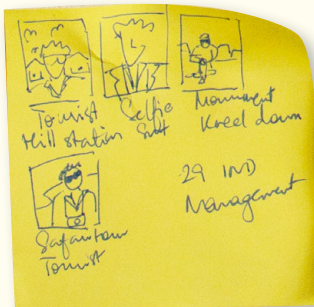 Tourist
Hill station
Selfie
Monument
Kneel down
Tourist
29 IND
Management